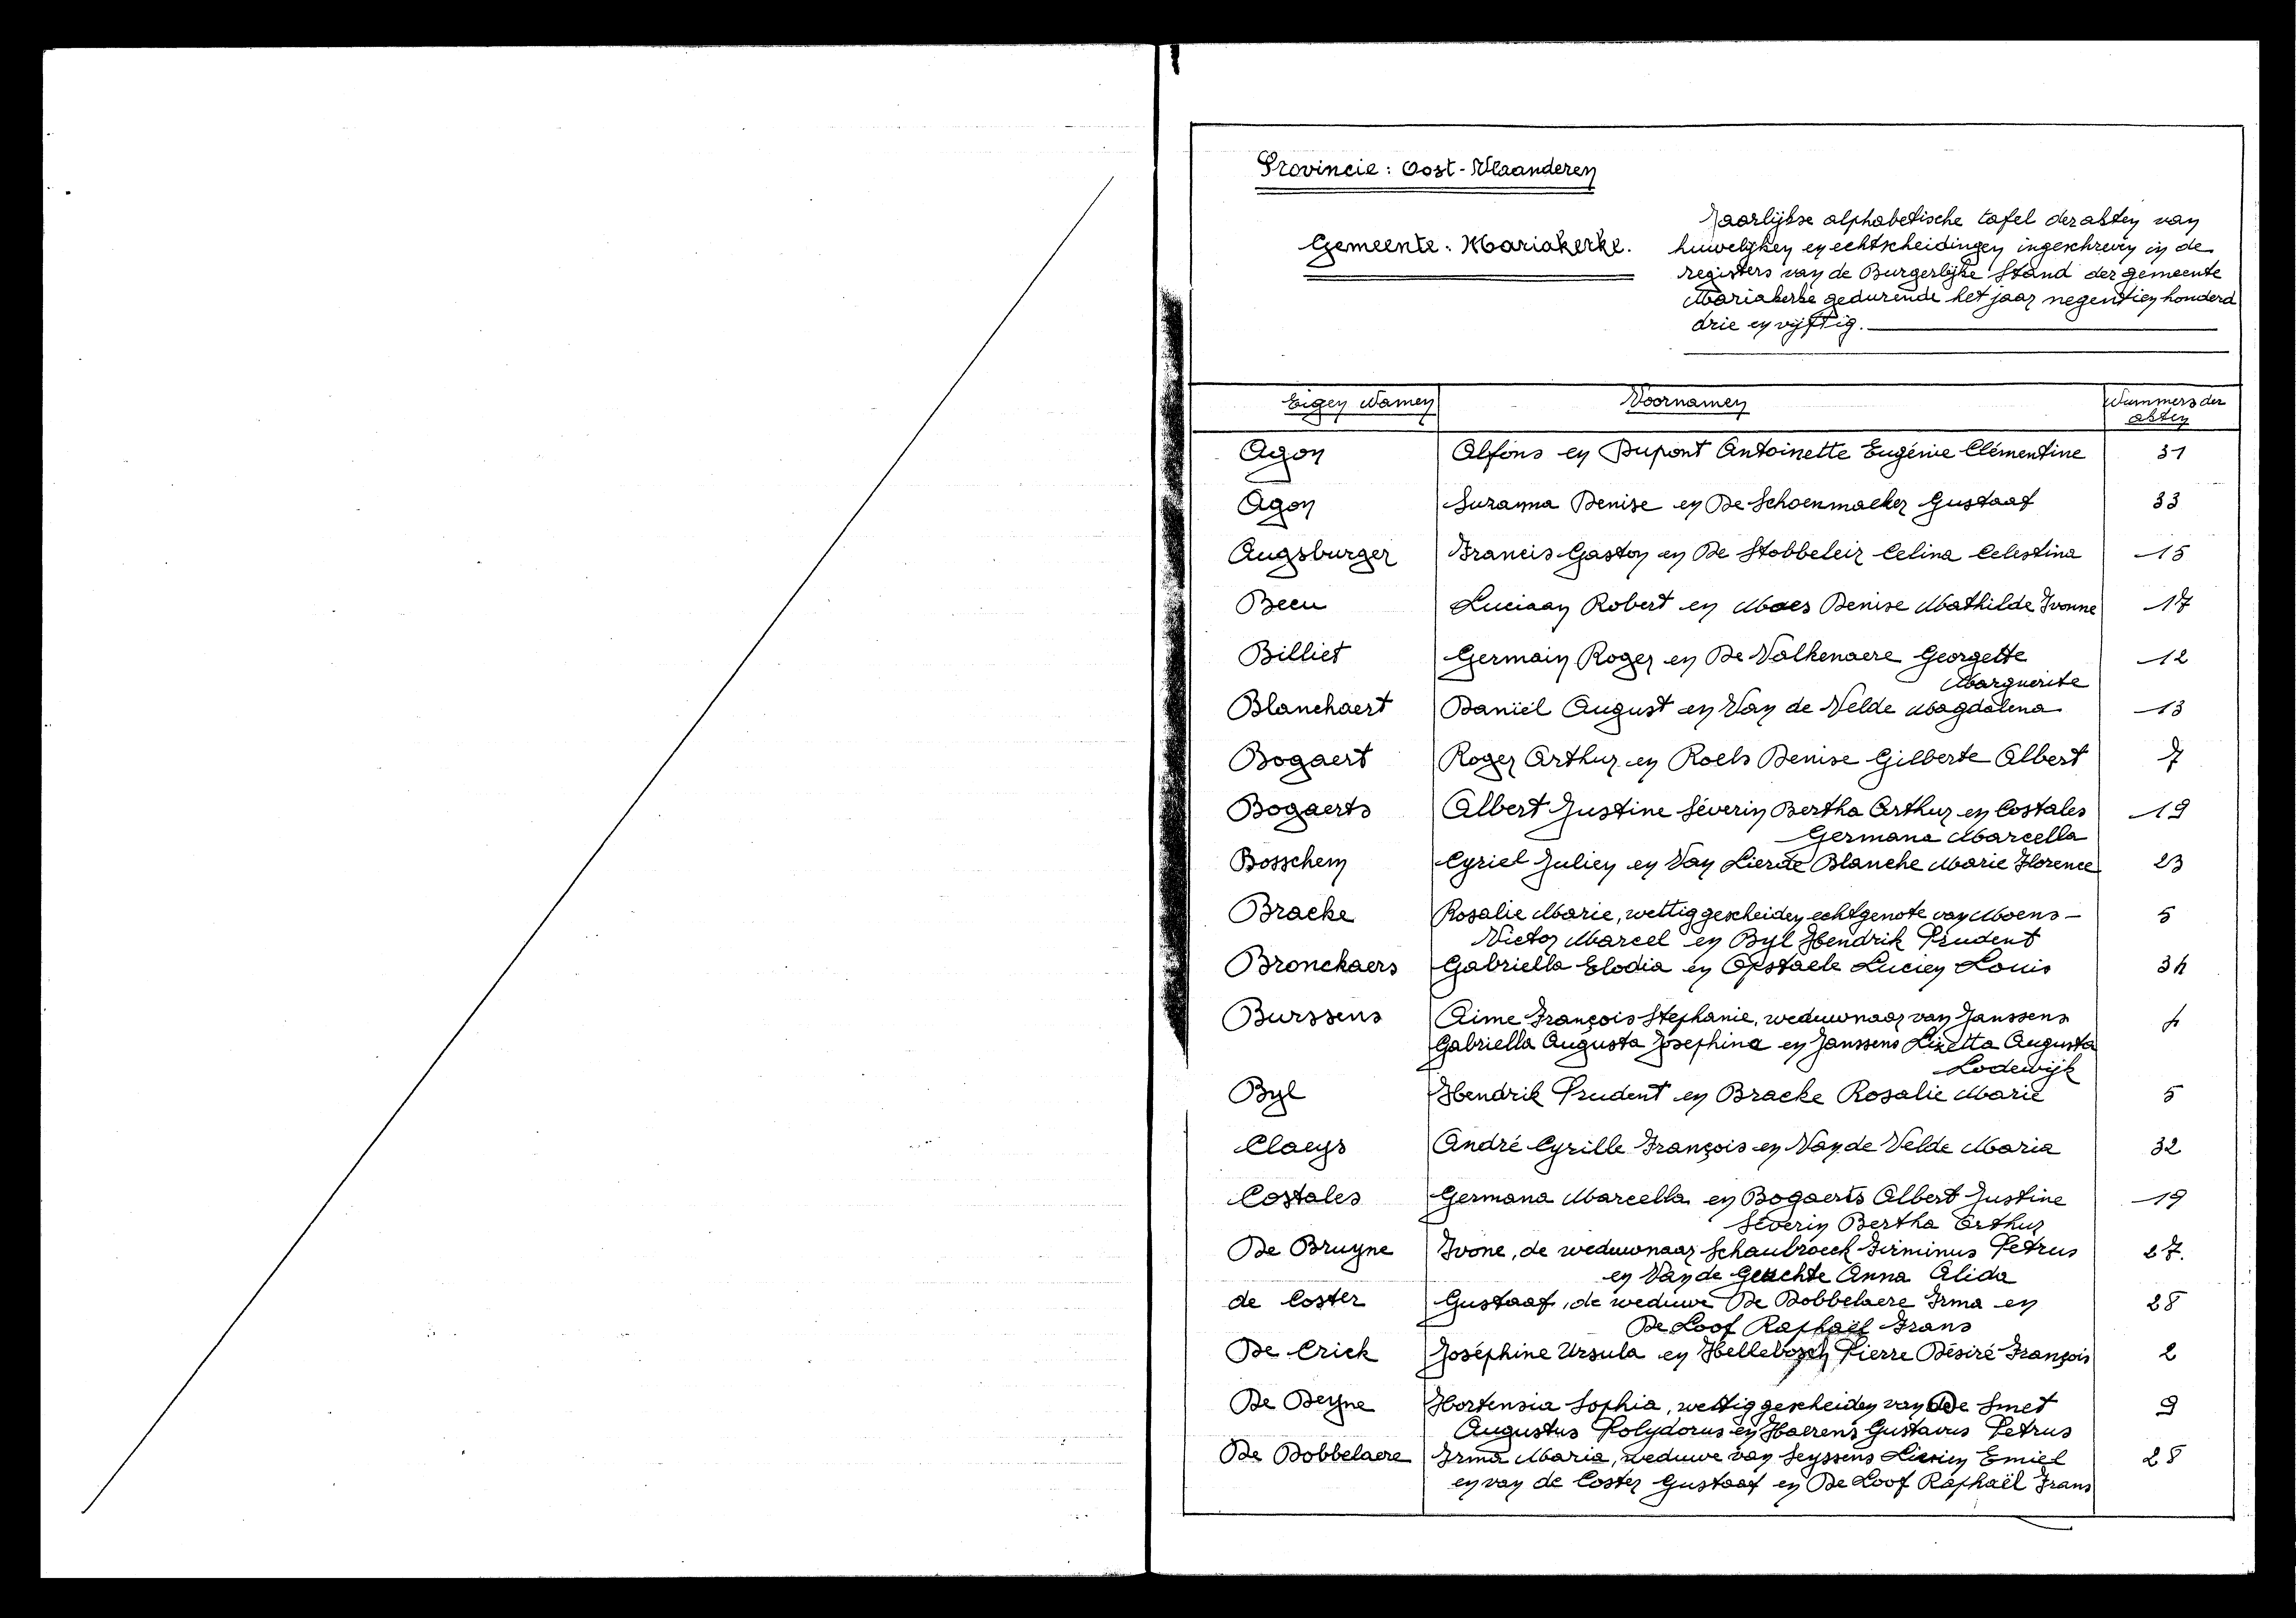 Provincie: Oost-Vlaanderen
Gemeente: Mariakerke.
Jaarlijkse alphabetische tafel der akten van
huwelijken en echtscheidingen ingeschreven in de
registers van de Burgerlijke Stand der gemeente
Mariakerke gedurende het jaar negentien honderd
drie en vijftig.
Eigen Namen Voornamen Nummers der
akten
Agon Alfons en Dupont Antoinette Eugénie Clémentine 31
Agon Suzanna Denise en De Schoenmaeker Gustaaf 33
Augsburger Francis Gaston en De Stobbeleir Celina Celestina 15
Beeu Luciaan Robert en Maes Denise Mathilde Ivonne 17
Billiet Germain Roger en De Valkenaere Georgette 12
Marguerite
Blanchaert Daniël August en Van de Velde Magdalena 13
Bogaert Roger Arthur en Roels Denise Gilberte Albert 7
Bogaerts Albert Justine Séverin Bertha Arthur en Costales 19
Germana Marcella
Bosschem Cyriel Julien en Van Lierde Blanche Marie Florence 23
Bracke Rosalie Marie, wettig gescheiden echtgenote van Moens - 5
Victor Marcel en Byl Hendrik Prudent
Bronckaers Gabriella Elodia en Opstaele Lucien Louis 34
Burssens Aime François Stephanie, weduwnaar van Janssens 4
Gabriella Augusta Josephina en Janssens Lizetta Augusta
Lodewijk
Byl Hendrik Prudent en Bracke Rosalie Marie 5
Claeys André Cyrille François en Van de Velde Maria 32
Costales Germana Marcella en Bogaerts Albert Justine 19
Séverin Bertha Arthur
De Bruyne Ivone, de weduwnaar Schaubroeck Firminus Petrus 27.
en Van de Geuchte Anna Alida
de Coster Gustaaf, de weduwe De Dobbelaere Irma en 28
De Loof Raphaël Frans
De Crick Joséphine Ursula en Hellebosch Pierre Désiré François 2
De Deyne Hortensia Sophia, wettig gescheiden van De Smet 9
Augustus Polydorus en Haerens Gustavus Petrus
De Dobbelaere Irma Maria, weduwe van Seyssens Emiel 28
en van de Coster Gustaaf en De Loof Raphaël Frans